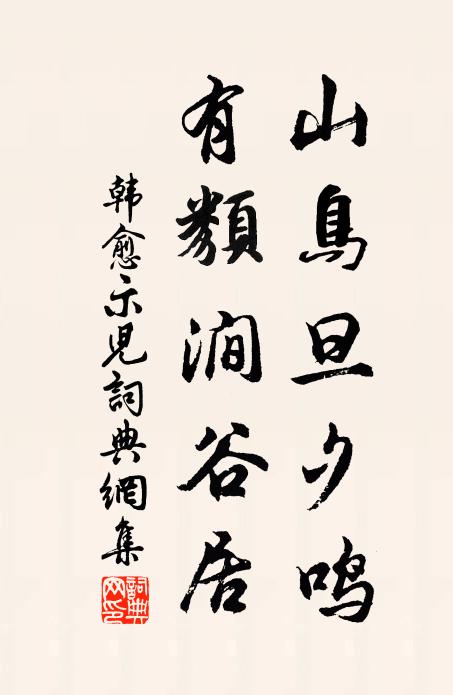 山鳥旦夕鳴
有類澗谷居
韩愈示児詞典網集
詞典
网印